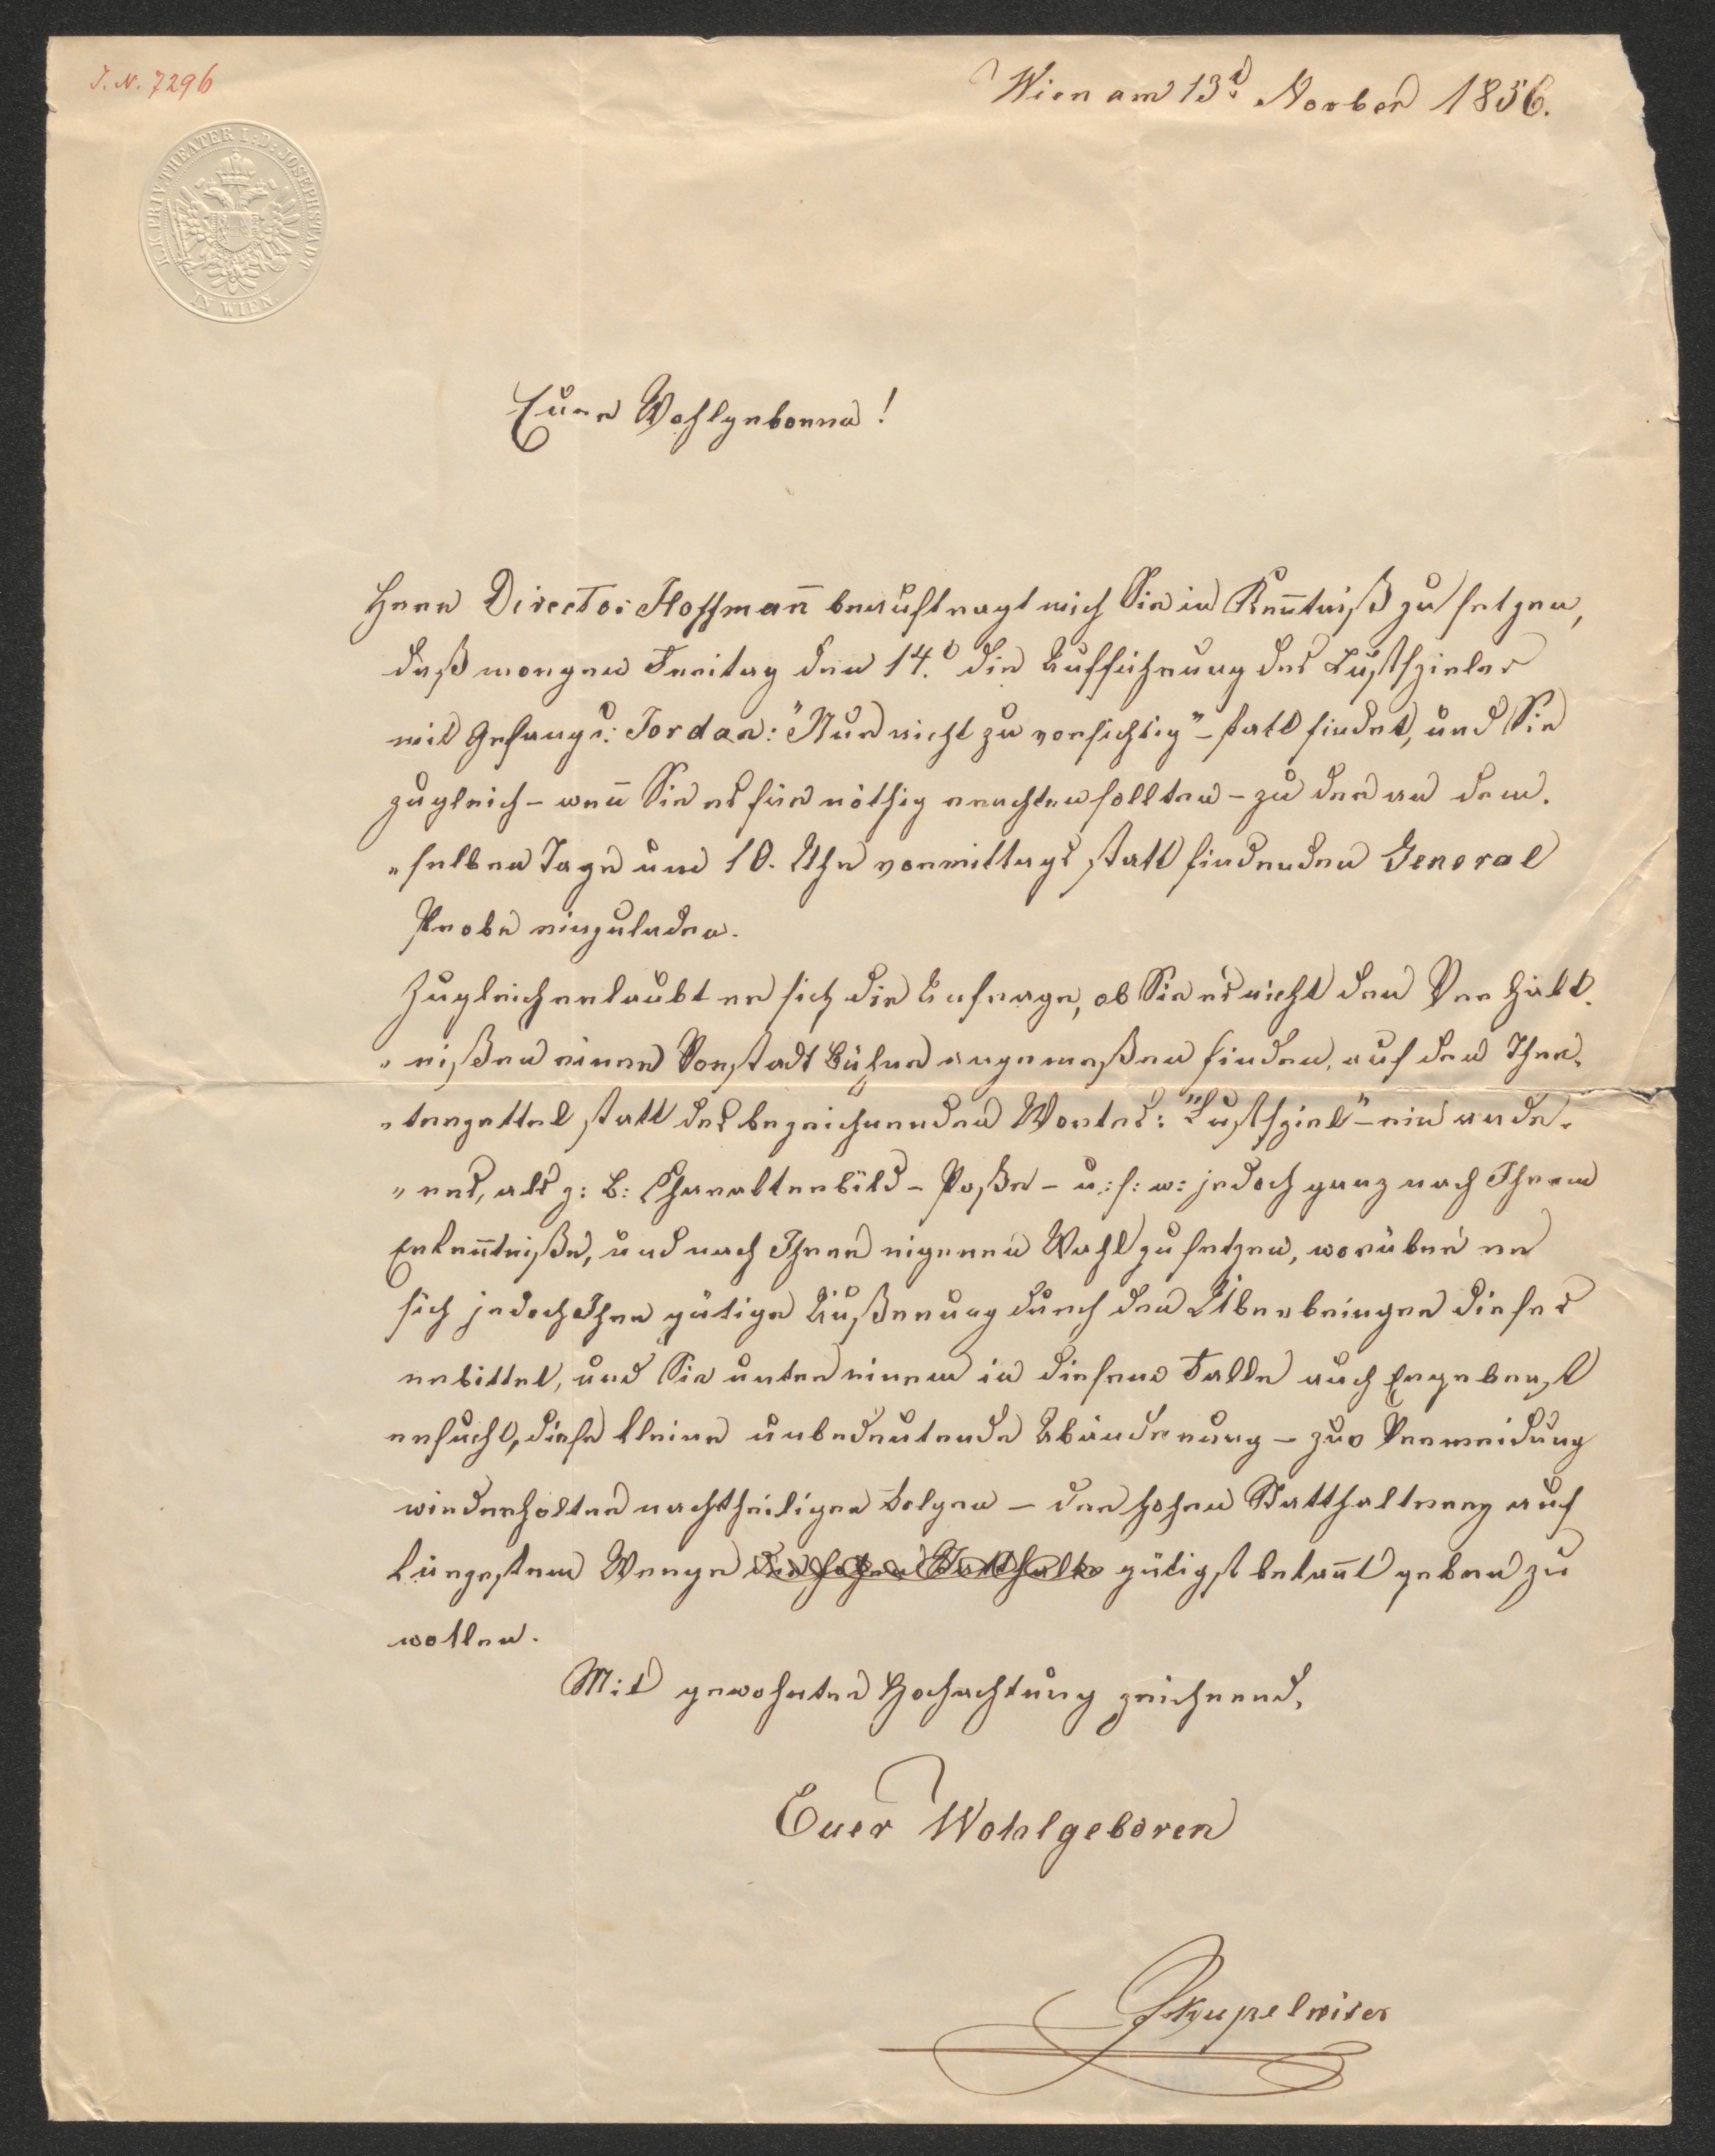 J. N. 7296
Wien am 13t Novber 1856.
K. K. PRIV. THEATER I: D: JOSEPHSTADT
IN WIEN.
Euer Wohlgeboren!
Herr Director Hoffmann̄ beauftragt mich Sie in Kenn̄tniß zu setzen,
daß morgen Freitag den 14. die Aufführung des Lustspieles
mit Gesang v: Jordan: "Nur nicht zu vorsichtig" – statt findet, und Sie
zugleich – wen̄ Sie es für nöthig erachten sollten – zu der an dem„
„selben Tage um 10. Uhr vormittags statt findenden General
Probe einzuladen.
Zugleich erlaubt er sich die Anfrage, ob Sie es nicht den Verhält„
„nißen einer Vorstadt Bühne angemeßen finden, auf den Thea„
„terzettel statt des bezeichnenden Wortes: "Lustspiel" – ein ande„
„res, als z: B: Charakterbild – Poße – u: s: w: jedoch ganz nach Ihrem
Erken̄tniße, und nach Ihrer eigenen Wahl zu setzen, worüber er
sich jedoch Ihre gütige Äußerung durch den Überbringer dieses
erbittet, und Sie unter einem in diesem Falle auch Ergebenst
ersucht, diese kleine unbedeutende Abänderung – zur Vermeidung
wiederholter nachtheiliger Folgen – der hohen Statthalterey auf
kürzestem Wege der hohen Statthalte gütigst bekan̄t geben zu
wollen.
Mit gewohnter Hochachtung zeichnend,
Euer Wohlgeboren
JKupelwieser